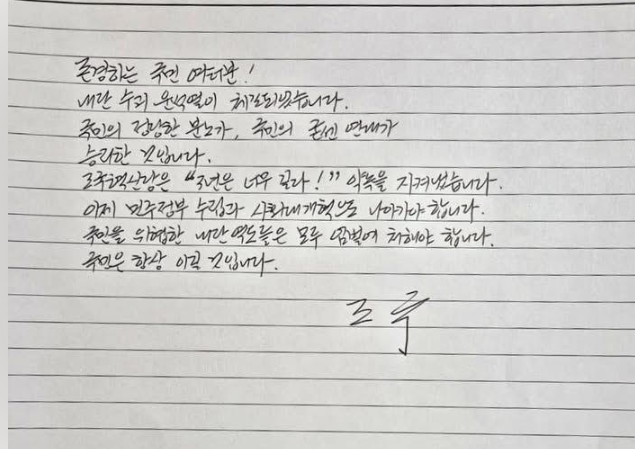 존경하는 국민 여러분!
내란 수괴 윤석열이 체포되었습니다.
국민의 정당한 분노가, 국민의 굳센 연대가
승리한 것입니다.
조국혁신당은 "3년은 너무 길다!" 약속을 지켜냈습니다.
이제 민주정부 수립과 사회대개혁으로 나아가야 합니다.
국민을 위협한 내란역도들은 모두 엄벌에 처해야 합니다.
국민은 항상 이길 것입니다.
조 국